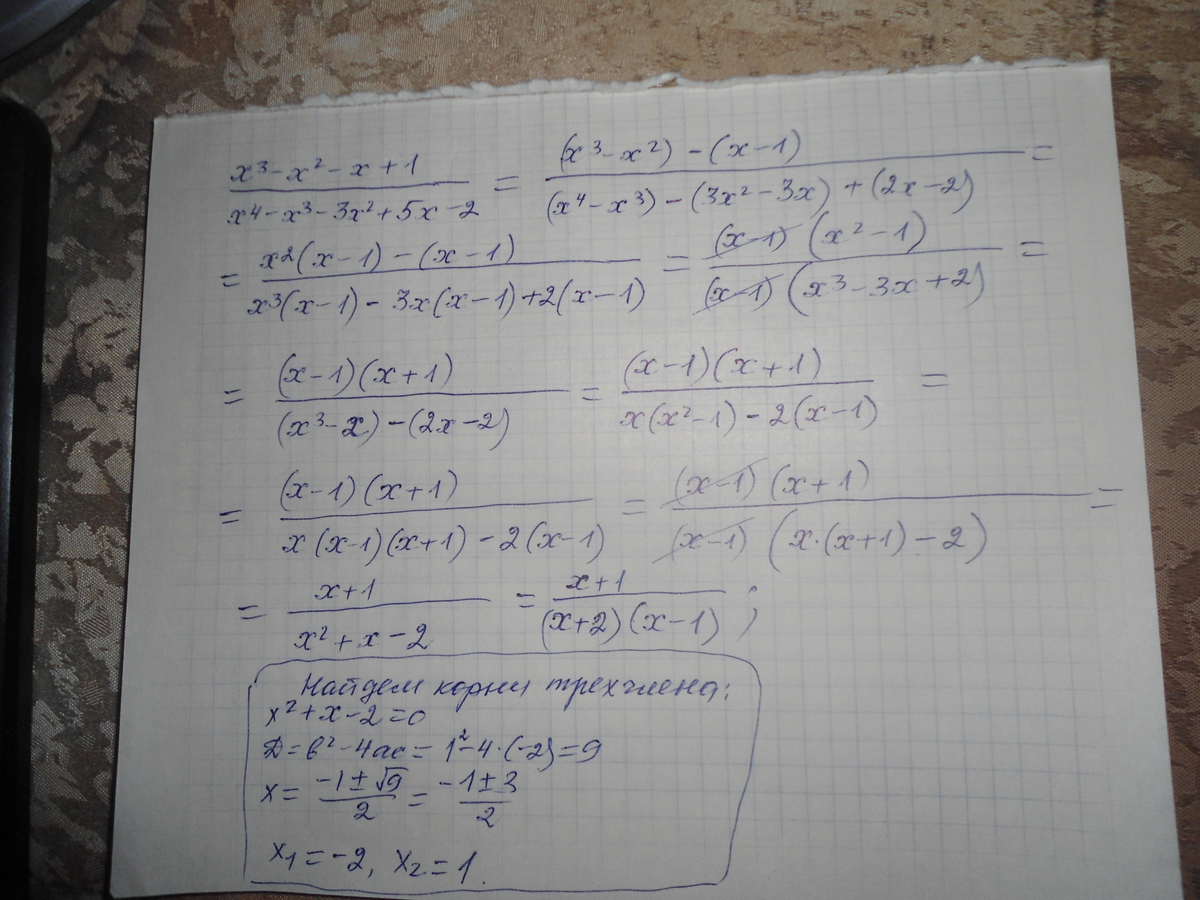 (x³ - x² - x + 1)/(x⁴ - x³ - 3x² + 5x - 2) = ((x³ - x²) - (x - 1))/((x⁴ - x³) - (3x² - 3x) + (2x - 2)) =
= (x²(x - 1) - (x - 1))/(x³(x - 1) - 3x(x - 1) + 2(x - 1)) = ((x - 1)(x² - 1))/((x - 1)(x³ - 3x + 2)) =
= ((x - 1)(x + 1))/((x³ - x) - (2x - 2)) = ((x - 1)(x + 1))/(x(x² - 1) - 2(x - 1)) =
= ((x - 1)(x + 1))/(x(x - 1)(x + 1) - 2(x - 1)) = ((x - 1)(x + 1))/((x - 1)(x·(x + 1) - 2)) =
= (x + 1)/(x² + x - 2) = (x + 1)/((x + 2)(x - 1));
Найдем корни трехчлена:
x² + x - 2 = 0
D = b² - 4ac = 1² - 4·(-2) = 9
x = (-1 ± √9)/2 = (-1 ± 3)/2
x₁ = -2, x₂ = 1.